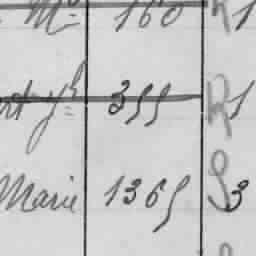 Mr 160 R 1
355 R 1
Marie 1365 S 3